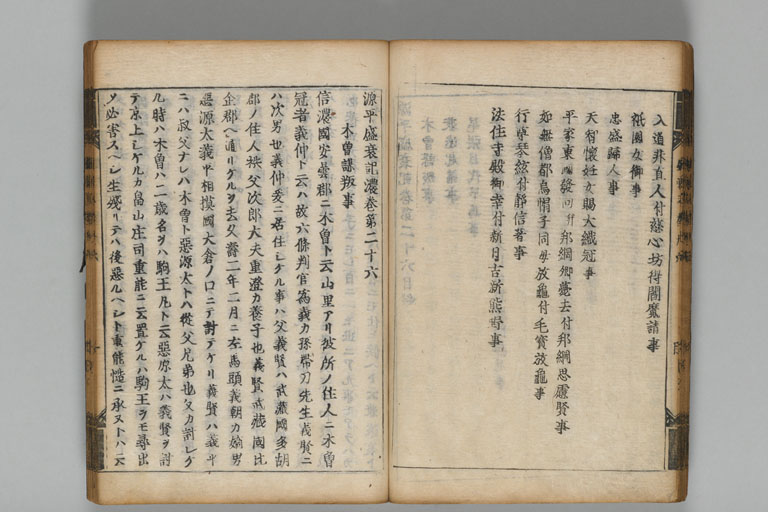 入道非直人付慈心坊得閻魔請事
祇園女御事
忠盛歸人事
天智懷妊女賜大織冠事
平家東國發向并邦綱卿薨去付邦綱思慮賢事
如無僧都烏帽子同母放龜付毛寳放龜事
行尊琴絃付靜信箸事
法住寺殿御幸付新日吉新熊野事
源平盛衰記濃巻第二十六
木曽謀叛事
信濃國安曇郡ニ木曽ト云山里アリ彼所ノ住人ニ木曽
冠者義仲ト云ハ故六條判官爲義カ孫帶刀先生義賢ニ
ハ次男也義仲爰ニ居住シケル事ハ父義賢ハ武藏國多胡
郡ノ住人秩父次郎大夫重澄カ養子也義賢武藏國比
企郡ヘ通リケルヲ去久壽二年二月ニ左馬頭義朝カ嫡男
惡源太義平相摸國大倉ノ口ニテ討テケリ義賢ハ義平
ニハ叔父ナレハ木曽ト惡源太トハ從父兄弟也父カ討レケ
ル時ハ木曽ハ二歳名ヲハ駒王丸ト云惡源太ハ義賢ヲ討
テ京上シケルカ畠山庄司重能ニ云置ケルハ駒王ヲモ尋出
ソ必害スヘシ生殘リテハ後惡ルヘシト重能慥ニ承ヌトハ云